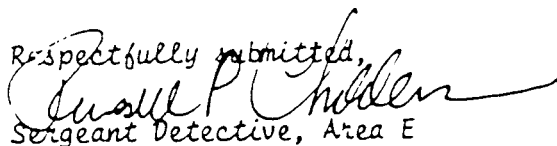 Respectfully submitted,
Russell P Childers
Sergeant Detective, Area E